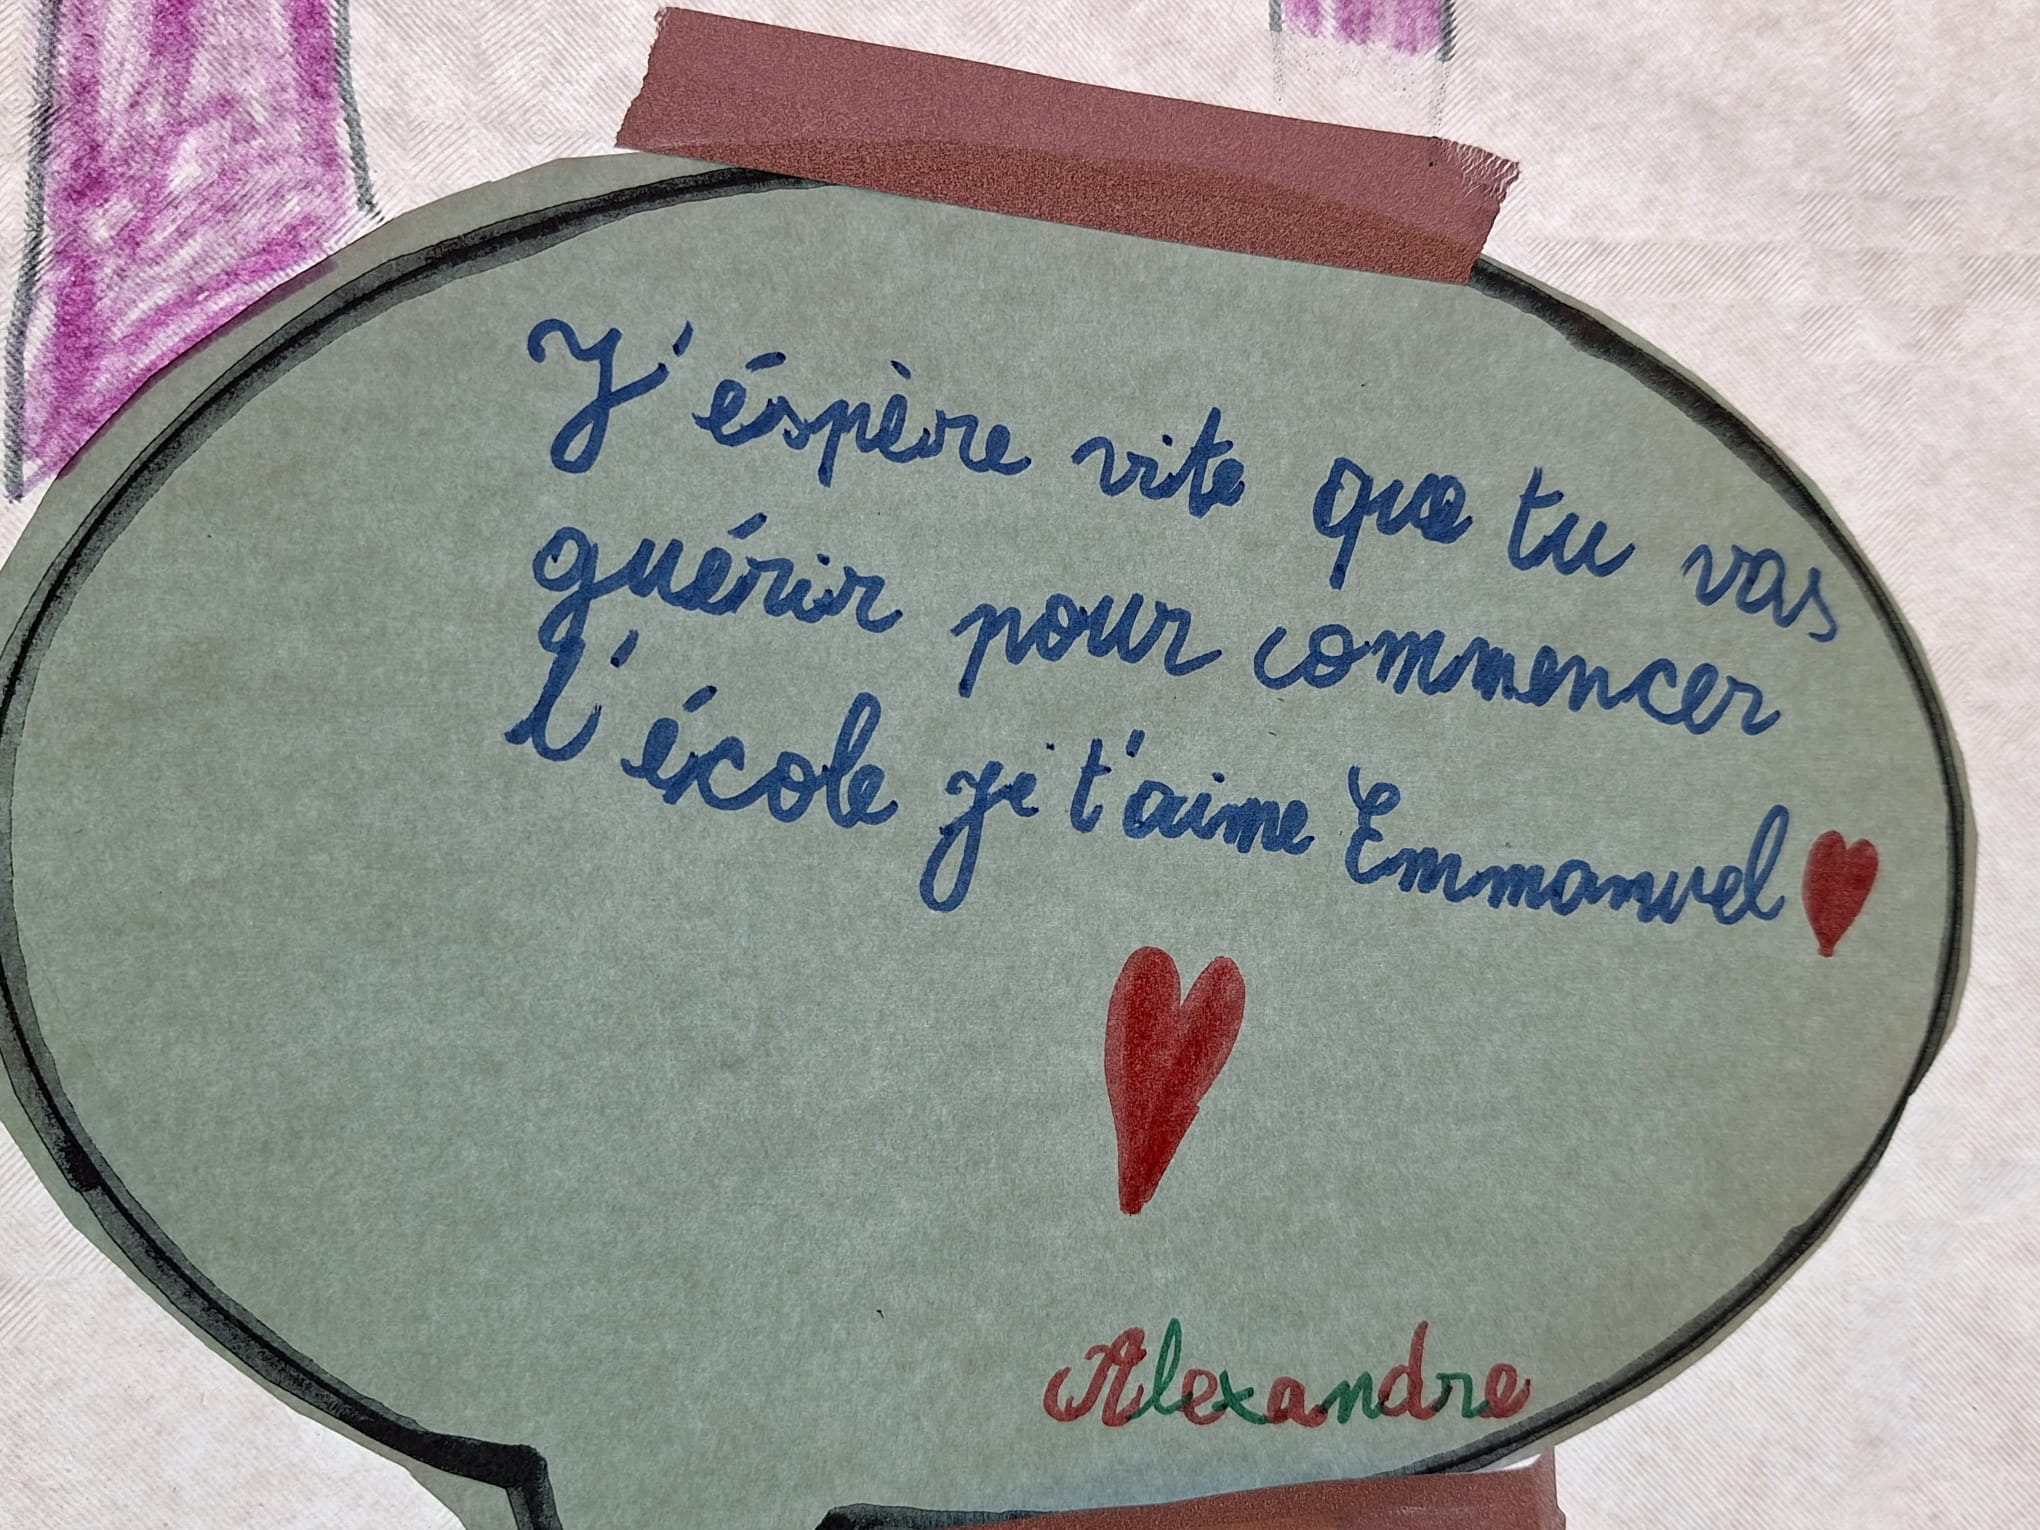 J'éspère vite que tu vas
guérir pour commencer
l'école je t'aime Emmanuel
Alexandre